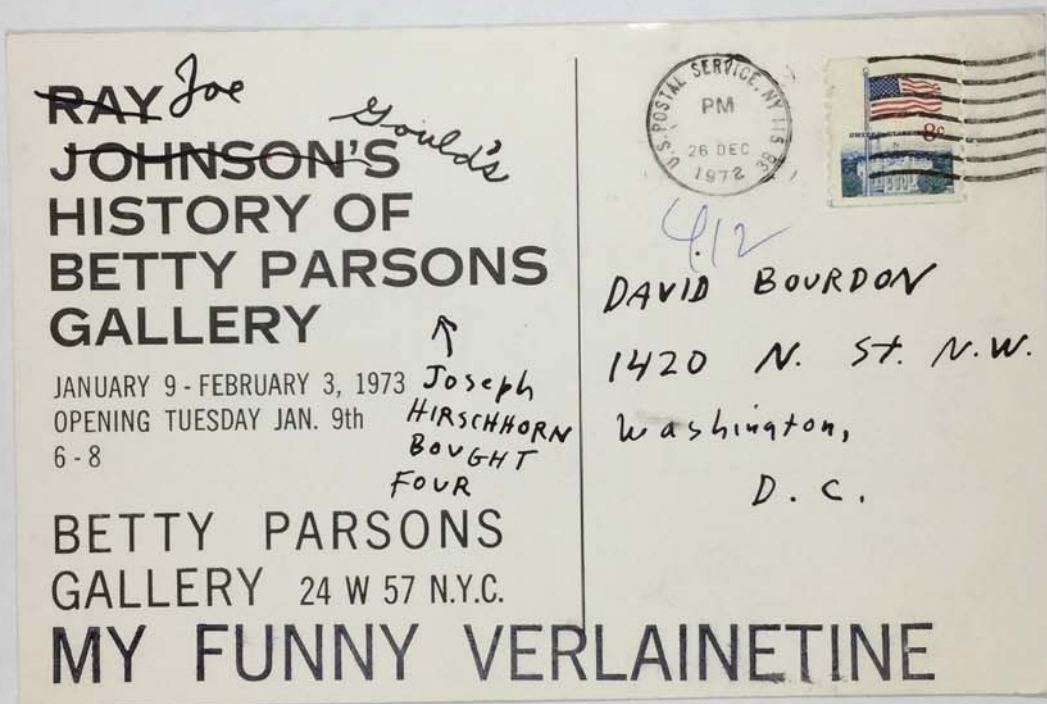 RAY Joe
JOHNSON'S Gould's
HISTORY OF
BETTY PARSONS
GALLERY
JANUARY 9 - FEBRUARY 3, 1973
OPENING TUESDAY JAN. 9th
6 - 8
↑
Joseph
HIRSCHHORN
BOUGHT
FOUR
BETTY PARSONS
GALLERY 24 W 57 N.Y.C.
MY FUNNY VERLAINETINE
U.S. POSTAL SERVICE, NY 115 3B
PM
26 DEC
1972
8c
412
DAVID BOURDON
1420 N. St. N.W.
Washington,
D. C.